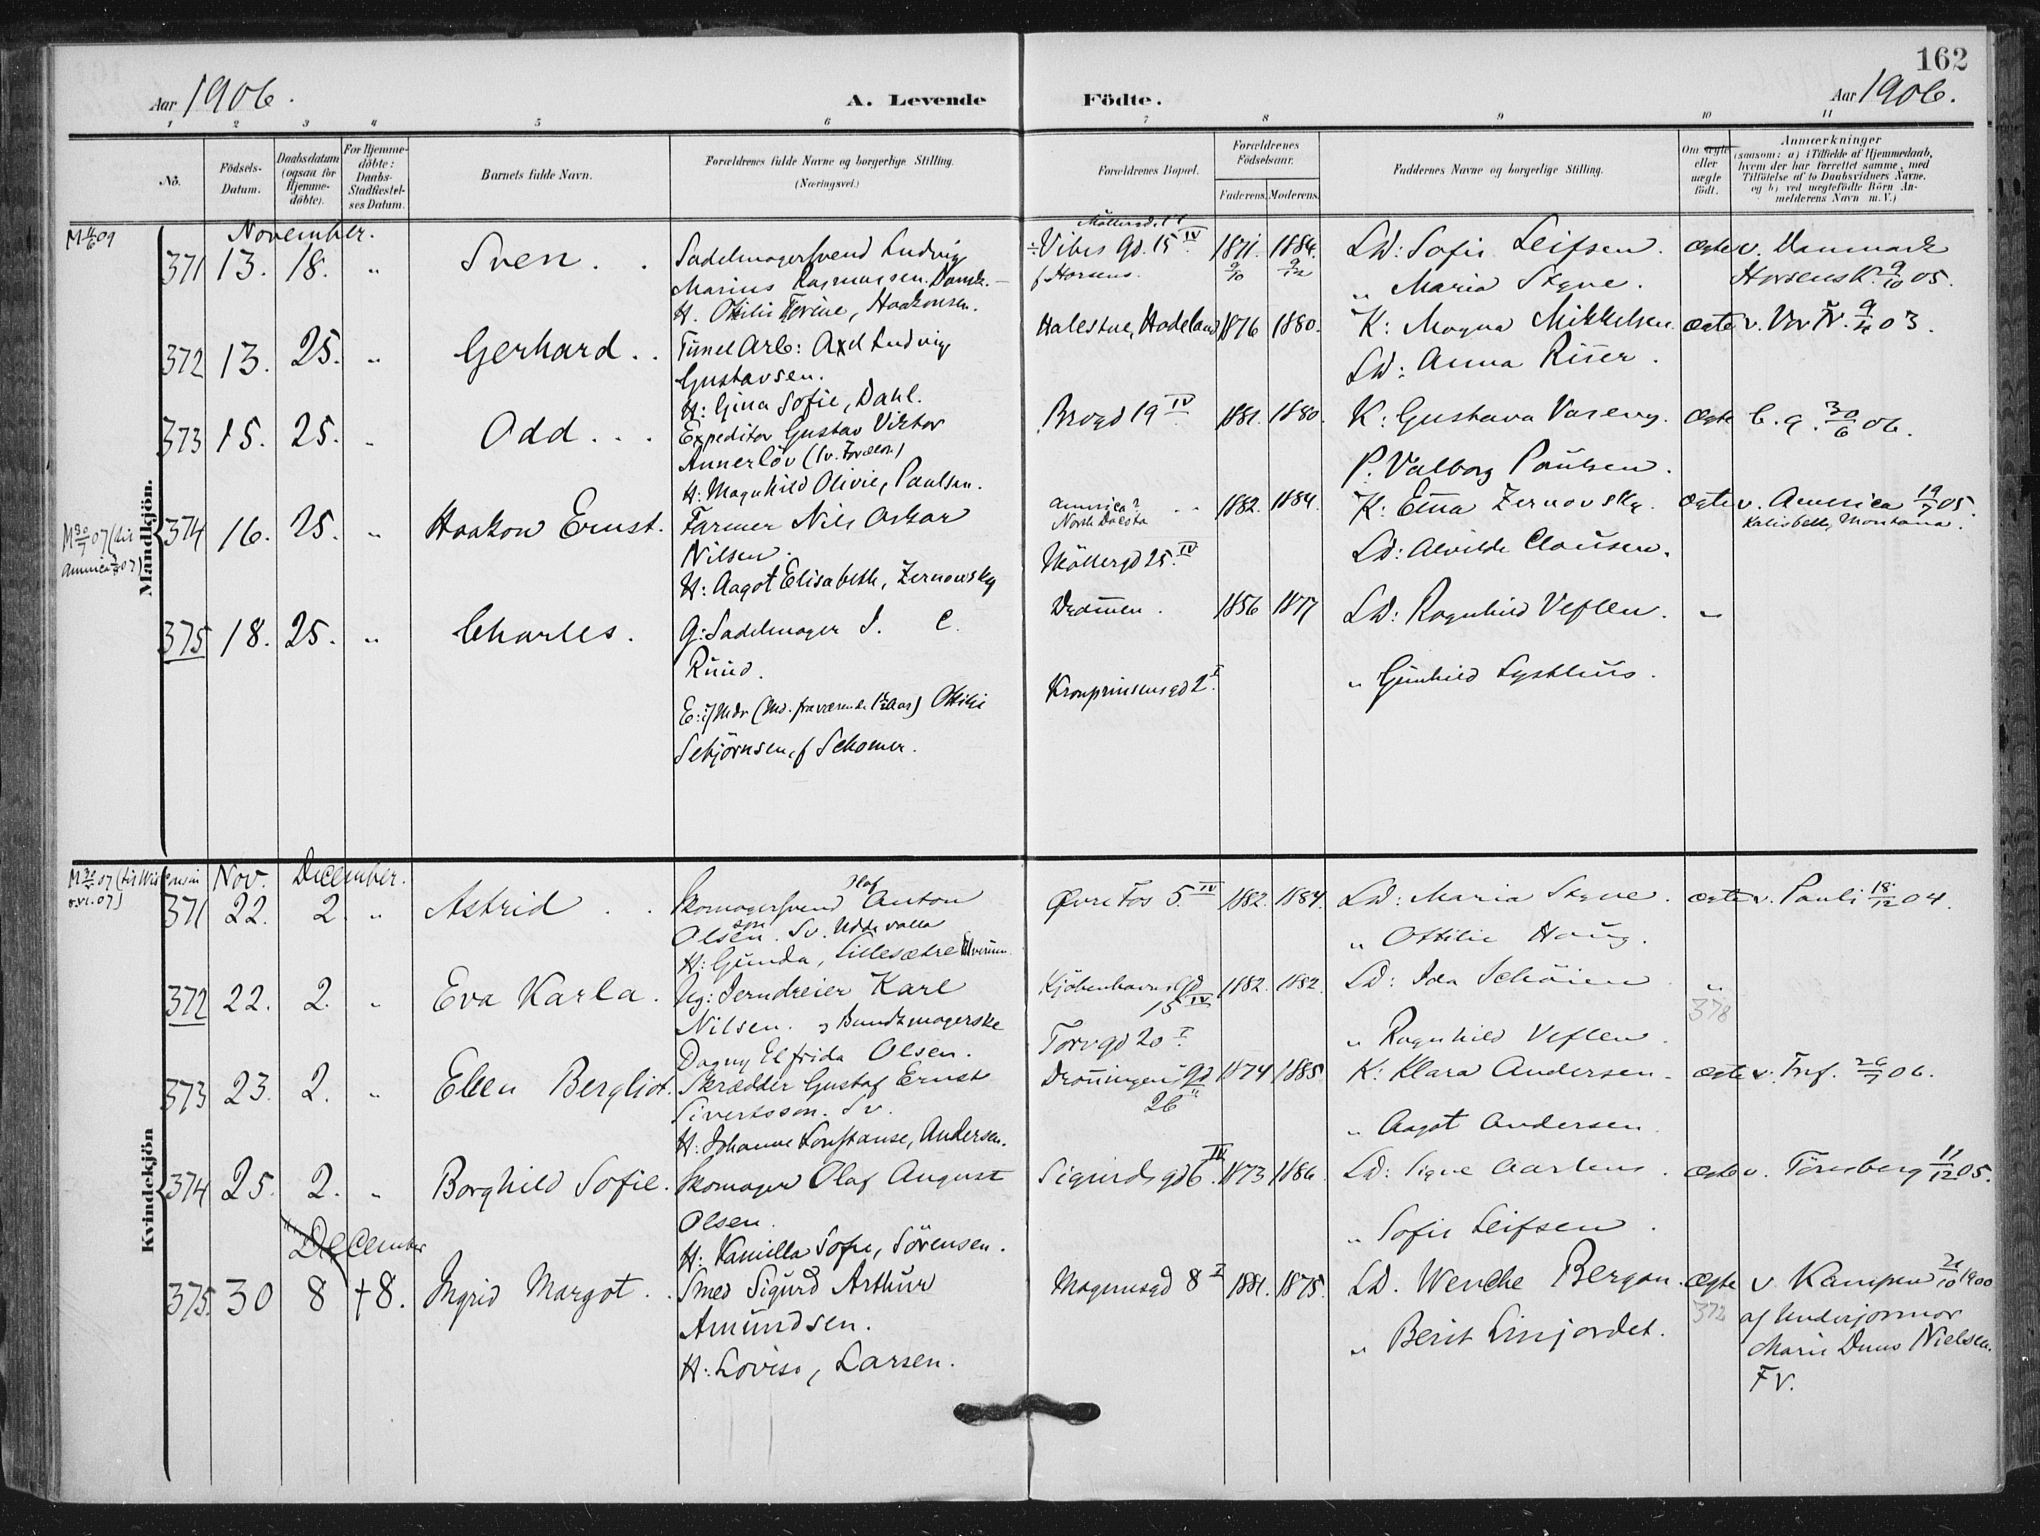 162
Aar 1906.
A. Levende Födte.
Aar 1906.
1 2 3 4 5 6 7 8 9 10 11
No.
Födsels-Datum.
Daabsdatum (ogsaa for Hjemme-döbte).
For Hjemme-döbte: Daabs-Stadfæstel-ses Datum.
Barnets fulde Navn.
Forældrenes fulde Navne og borgerlige Stilling.
(Næringsvei.)
Forældrenes Bopæl.
Forældrenes Födselsaar.
Faderens. Moderens.
Faddernes Navne og borgerlige Stilling.
Om ægte eller uægte födt.
Anmærkninger
(saasom: a) i Tilfælde af Hjemmedaab,
hvem der har forrettet samme, med
Tilföielse af to Daabsvidners Navne,
og b) ved uægtefödte Börn An-
melderens Navn m. V.)
Mandkjön.
November.
371 13. 18. " Sven . .
Sadelmagersvend Ludvig
Marius Rasmussen. Dansk.
H. Otilie Terine, Haakonsen.
Vibes gd. 15 IV
f Horsens.
1871. 1884.
LD: Sofie Leifsen.
" Maria Skyne.
ægte v. Danmark
Horsens K. 29/10 05.
372 13. 25. " Gerhard . .
Tunel Arb: Axel Ludvig
Gustavsen.
H: Gina Sofie, Dahl.
Halestue, Hadeland 1876 1880.
K: Magna Mikkelsen.
LD: Anna Riser.
ægte v. Vor Fr. 9/4 03.
373 15. 25. " Odd . . .
Expeditor Gustav Viktor
Annerlöv (Sv. Forældr.)
H: Magnhild Olivie, Paulsen.
Brogd 19 IV 1881. 1880.
K: Gustava Vaseng.
P. Valborg Paulsen.
ægte b. g. 30/6 06.
374 16. 25. " Haakon Ernst.
Farmer Nils Oskar
Nilsen.
H: Aagot Elisabeth, Zernowsky
America?
North Dacota
Möllergd 25 IV
1882. 1884.
K: Etna Zernovsky.
LD: Alvilde Clausen.
ægte v. America 19/7 05.
Kalisbell, Montana.
375 18. 25. " Charles.
G: Sadelmager I. C.
Ruud.
Sebjörnsen, f Schomer.
Drammen. 1856 1877
Kronprinsensgd 2 I.
LD: Ragnhild Veflen.
" Gunhild Lysthus.
"
Kvindekjön
Nov. December.
371 22. 2. " Astrid . .
Skomagersvend Olaf Anton
Olsen. Sv. Uddevalla
H: Gunda, Lillesætre Elverum.
Øvre Fos 5. IV 1882. 1884.
LD: Maria Skyne.
" Ottilie Haug.
ægte v. Pauli 18/12 04.
372 22. 2. " Eva Karla.
Ug: Jerndreier Karl
Nilsen. og Buntmagerske
Dagny Elfrida Olsen.
Kjöbenhavnsgd
15 IV
Torvgd 20 I
1882. 1882.
LD: Ida Schöien
" Ragnhild Veflen
"
378
373 23. 2. " Ellen Bergliot.
Skrædder Gustaf Ernst
Sivertsson. Sv.
H: Johanne Konstanse, Andersen.
Dronningensgd
26
1874 1885.
K: Klara Andersen.
" Aagot Andersen.
ægte v. Trf. 26/7 06.
374 25. 2. " Borghild Sofie.
Skomager Olaf August
Olsen.
H: Kamilla Sofie, Sörensen.
Sigurdsgd 6 IV. 1873 1886.
LD: Signe Aarkens.
" Sofie Leifsen.
ægte v. Tönsberg 11/12 05.
December
375 30 8 + 8. Ingrid Margot. .
Smed Sigurd Arthur
Amundsen.
H: Lovise, Larsen.
Magnusgd 8 I 1881. 1875.
LD. Wenche Bergan.
" Berit Linjordet.
ægte v. Kampen 21/10 1900
372
af Undersjormor
Marie Duus Nielsen.
F V.